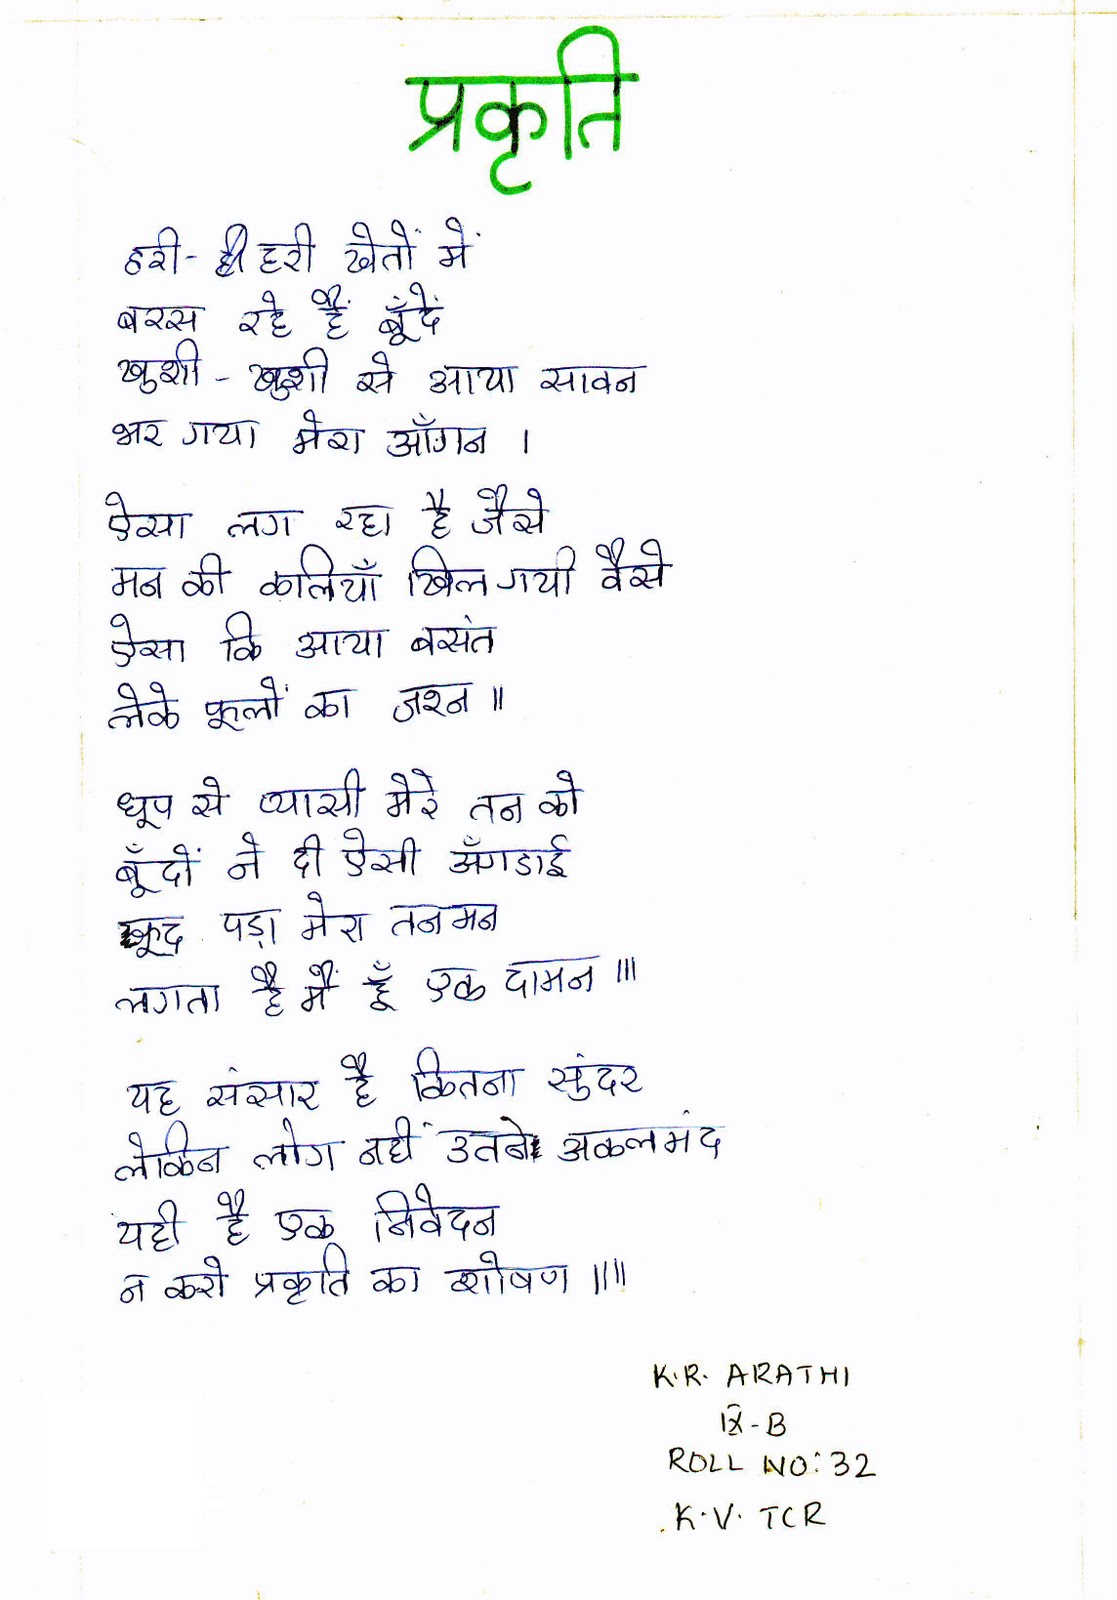 प्रकृति
हरी- हरी खेतों में
बरस रहे हैं बूँदें
खुशी - खुशी से आया सावन
भर गया मेरा आँगन ।
ऐसा लग रहा है जैसे
मन की कलियाँ खिल गयी वैसे
ऐसा कि आया बसंत
लेके फूलों का जश्न ॥
धूप से प्यासी मेरे तन को
बूँदों ने दी ऐसी अँगडाई
कूद पड़ा मेरा तनमन
लगता है मैं हूँ एक दामन ।।।
यह संसार है कितना सुंदर
लेकिन लोग नहीं उतने अकलमंद
यही है एक निवेदन
न करो प्रकृति का शोषण ।।।।
K.R. ARATHI
IX-B
ROLL NO: 32
K.V. TCR